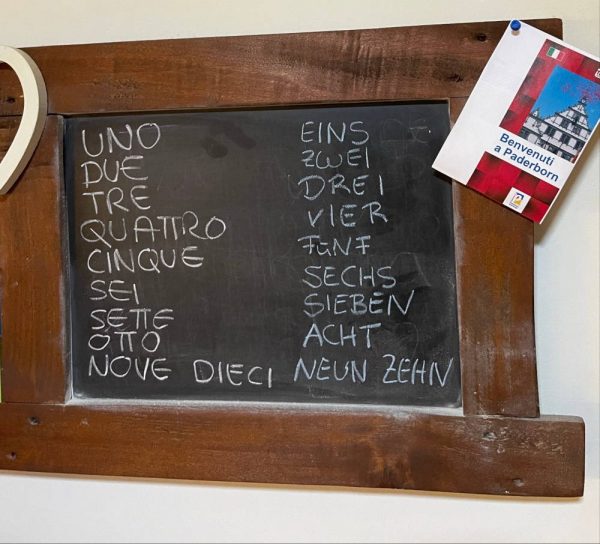 UNO
DUE
TRE
QUATTRO
CINQUE
SEI
SETTE
OTTO
NOVE DIECI
EINS
ZWEI
DREI
VIER
FÜNF
SECHS
SIEBEN
ACHT
NEUN ZEHN
Benvenuti
a Paderborn